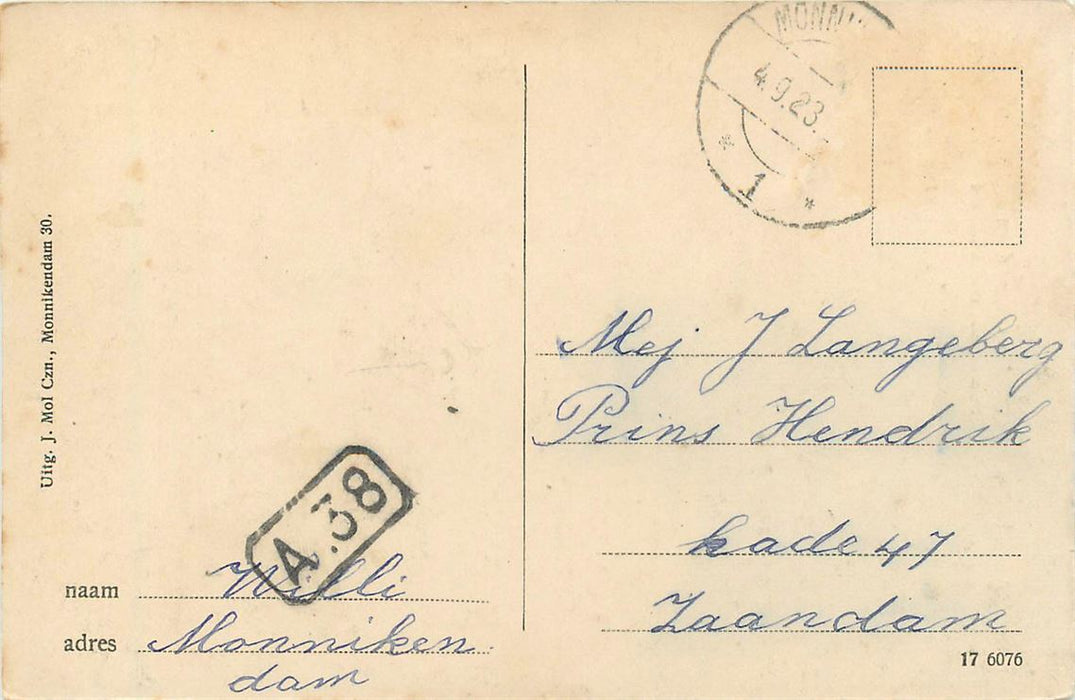 Uitg. J. Mol Czn., Monnikendam 30.
MONNI
4.9.23.
1
Mej J Langeberg
Prins Hendrik
kade 47
Zaandam
A.38
naam Willi
adres Monniken
dam
17 6076